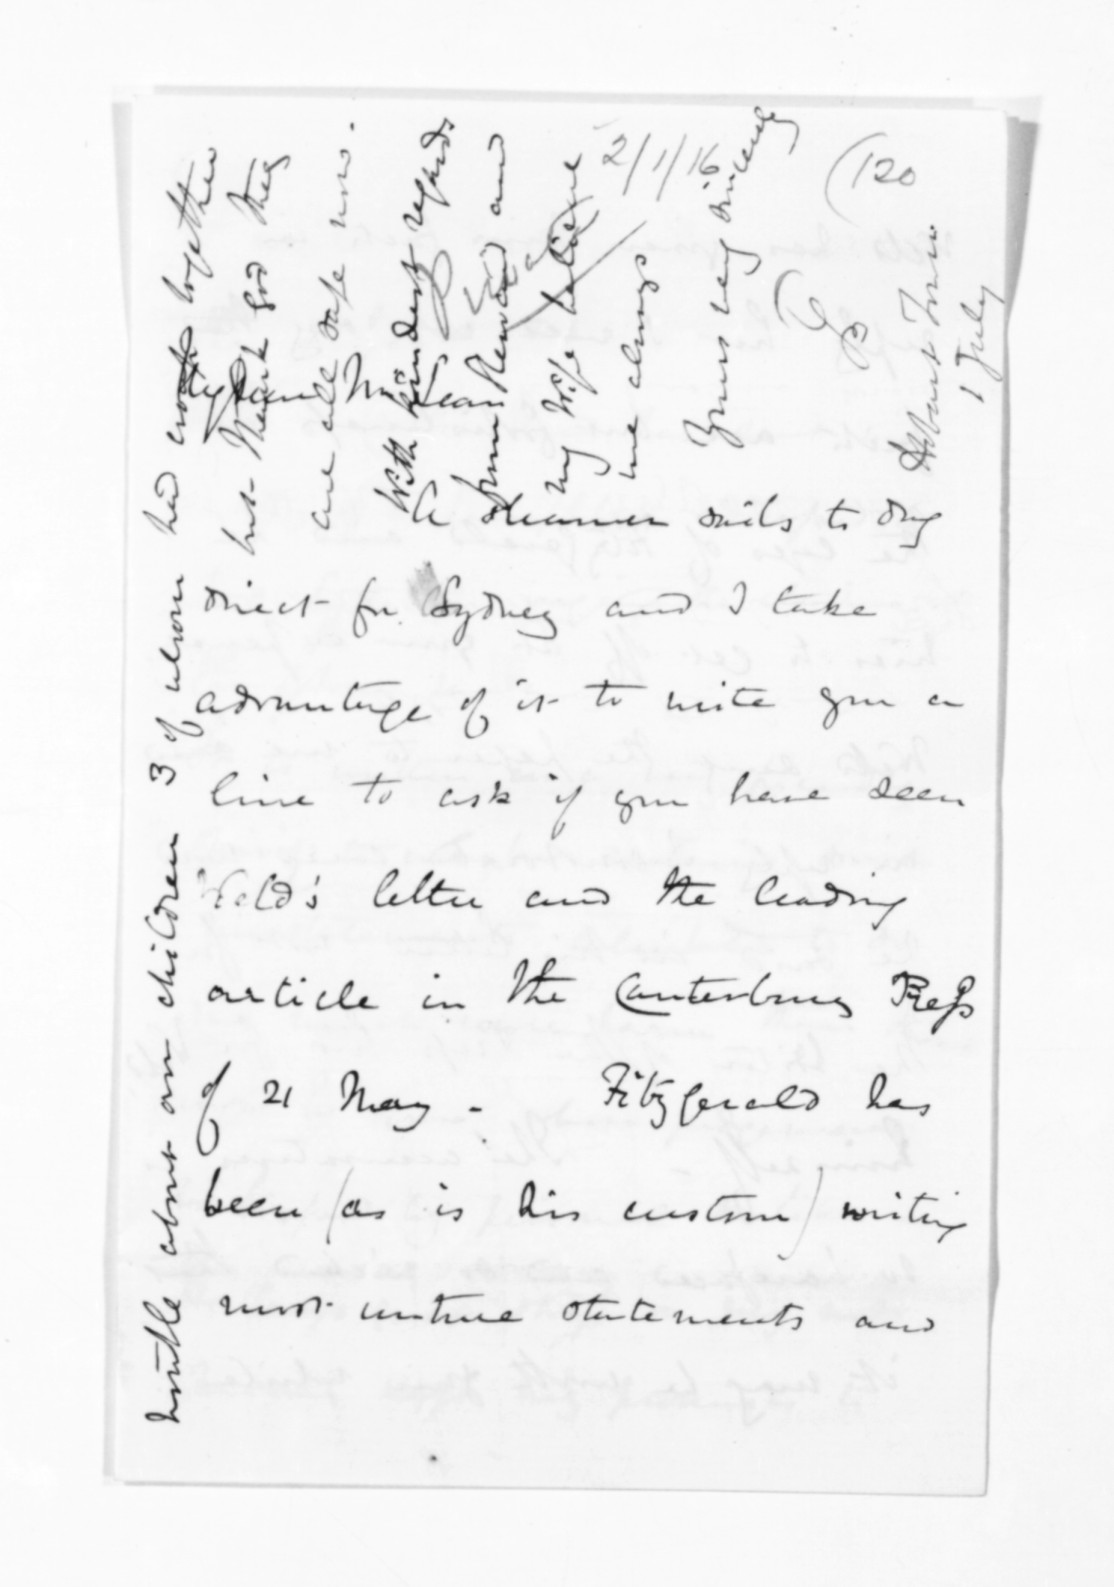 2/1/16
(120
Hobart Town
1 July
My Dear McLean
A steamer sails to day
direct for Sydney and I take
advantage of it to write you a
line to ask if you have seen
Weld's letter and the leading
article in the Canterbury Press
of 21 May - Fitzgerald has
been (as is his custom) writing
most untrue statements and
trouble about our children 3 of whom had croup together
but thank God they
are all safe now.
With kindest regards
from and
my Wife believe
me always
Yours very sincerely